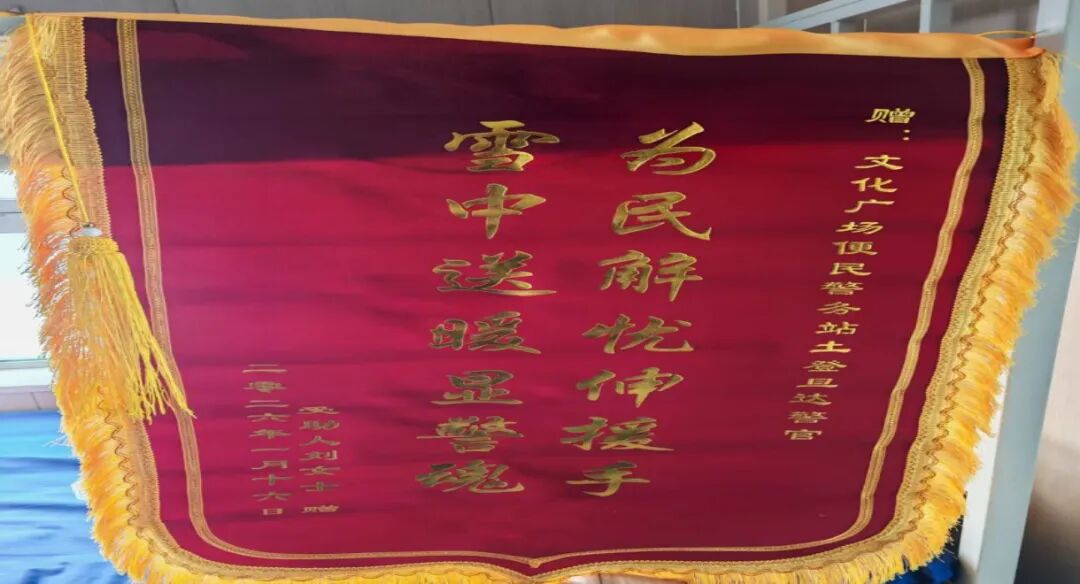 赠：文化广场便民警务站土登旦达警官
为民解忧伸援手
雪中送暖显警魂
受助人刘女士 赠
二零二六年一月十六日